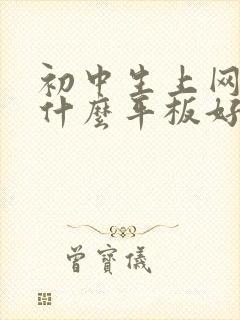 初中生上网
什麼平板好
曾寶儀